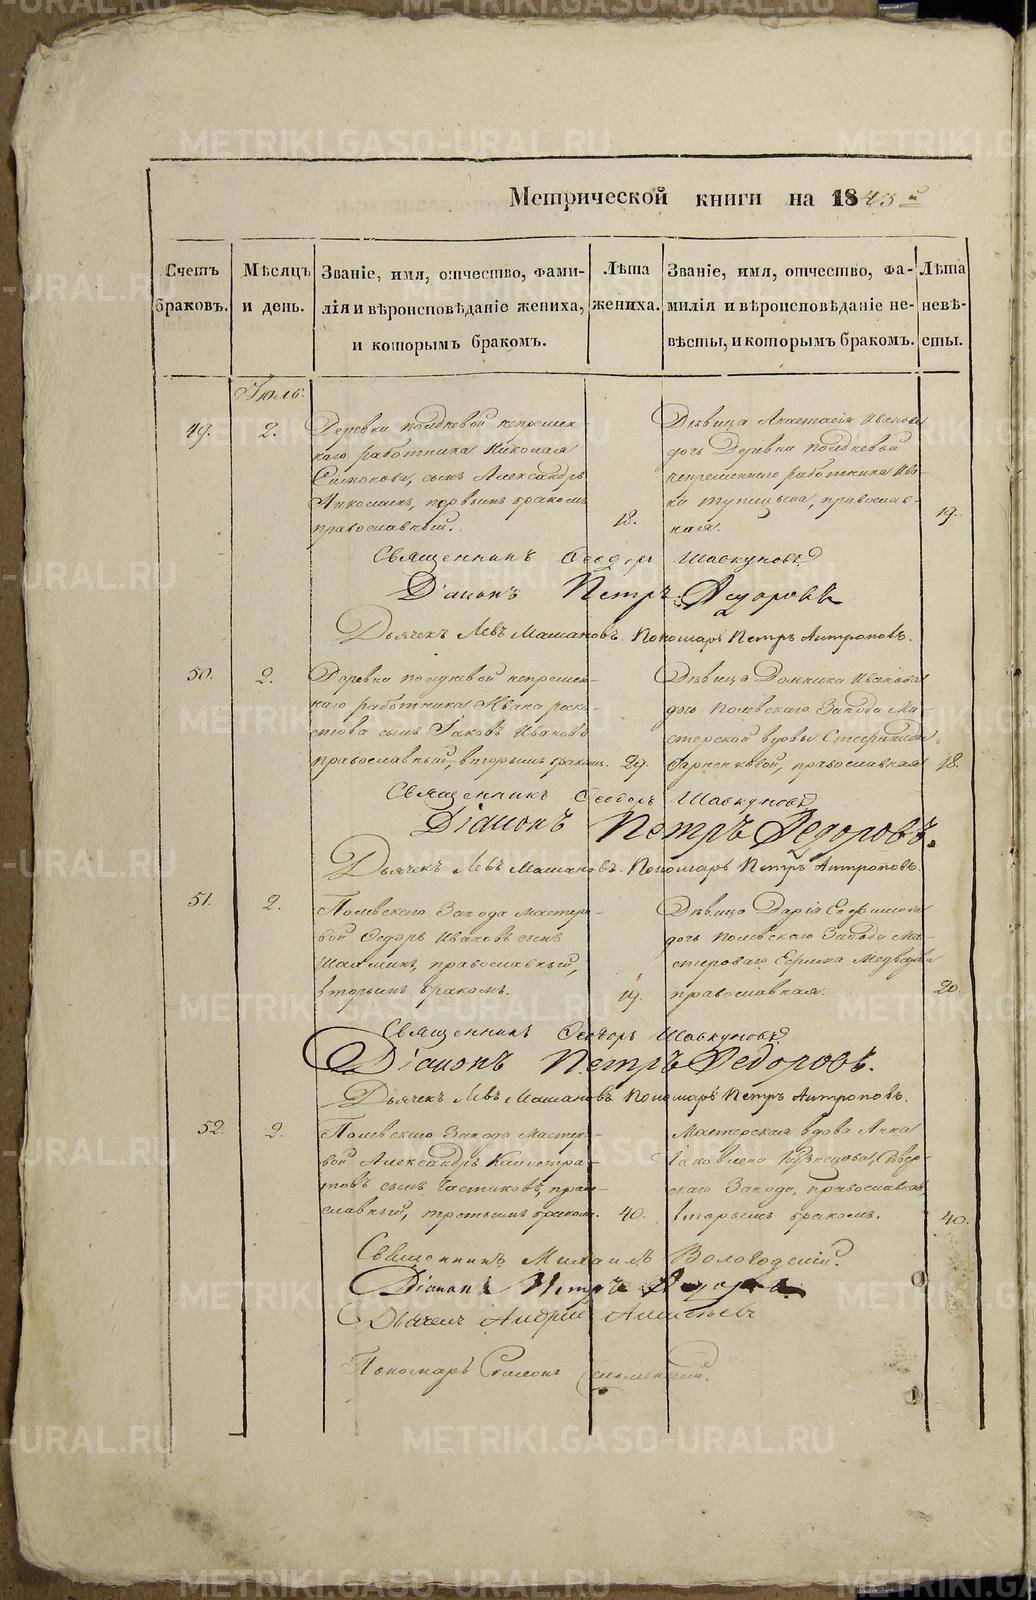 Метрической книги на 1843й
Счетъ браковъ.
Мѣсяцъ и день.
Званіе, имя, отчество, фами-
лія и вѣроисповѣданіе жениха,
и которымъ бракомъ.
Лѣта
жениха.
Званіе, имя, отчество, фа-
милія и вѣроисповѣданіе не-
вѣсты, и которымъ бракомъ.
Лѣта
невѣ-
сты.
Іюль.
49.
2.
Деревни Полдневой непремен-
наго работника Николая
сынъ Александръ
первымъ бракомъ
православный.
18.
Дѣвица Анастасія Иванова
дочь Деревни Полдневой
непременнаго работника Ива-
на Тупицына, православ-
ная.
19.
Священникъ Ѳеодоръ Шавкуновъ
Діаконъ Петръ Федоровъ
Дьячекъ Левъ Машановъ. Пономарь Петръ Антроповъ.
50.
2.
Деревни Полдневой непремен-
наго работника Ивана
сынъ Іаковъ Ивановъ
православный, вторымъ бракомъ.
29.
Дѣвица Домника Иванова
дочь Полевскаго Завода Ма-
стерской вдовы Стефаниды
православная
18.
Священникъ Ѳеодоръ Шавкуновъ
Діаконъ Петръ Федоровъ.
Дьячекъ Левъ Машановъ. Пономарь Петръ Антроповъ.
51.
2.
Полевскаго Завода Мастеро-
вой Ѳедоръ Ивановъ сынъ
православный,
вторымъ бракомъ.
19.
Дѣвица Дарія Ефимова
дочь Полевскаго Завода Ма-
стероваго Ефима Медведева
православная.
20.
Священникъ Ѳеодоръ Шавкуновъ
Діаконъ Петръ Федоровъ.
Дьячекъ Левъ Машановъ. Пономарь Петръ Антроповъ.
52.
2.
Полевскаго Завода Мастеро-
вой Александръ Калистра-
товъ сынъ Чистяковъ, право-
славный, третьимъ бракомъ.
40.
Мастерская вдова Анна
Іаковлева Кузнецова, Сѣвер-
скаго Завода, православная
вторымъ бракомъ.
40.
Священникъ Михаилъ Вологодский.
Діаконъ Петръ Федоровъ.
Дьячекъ Андрей
Пономарь
METRIKI.GASO-URAL.RU